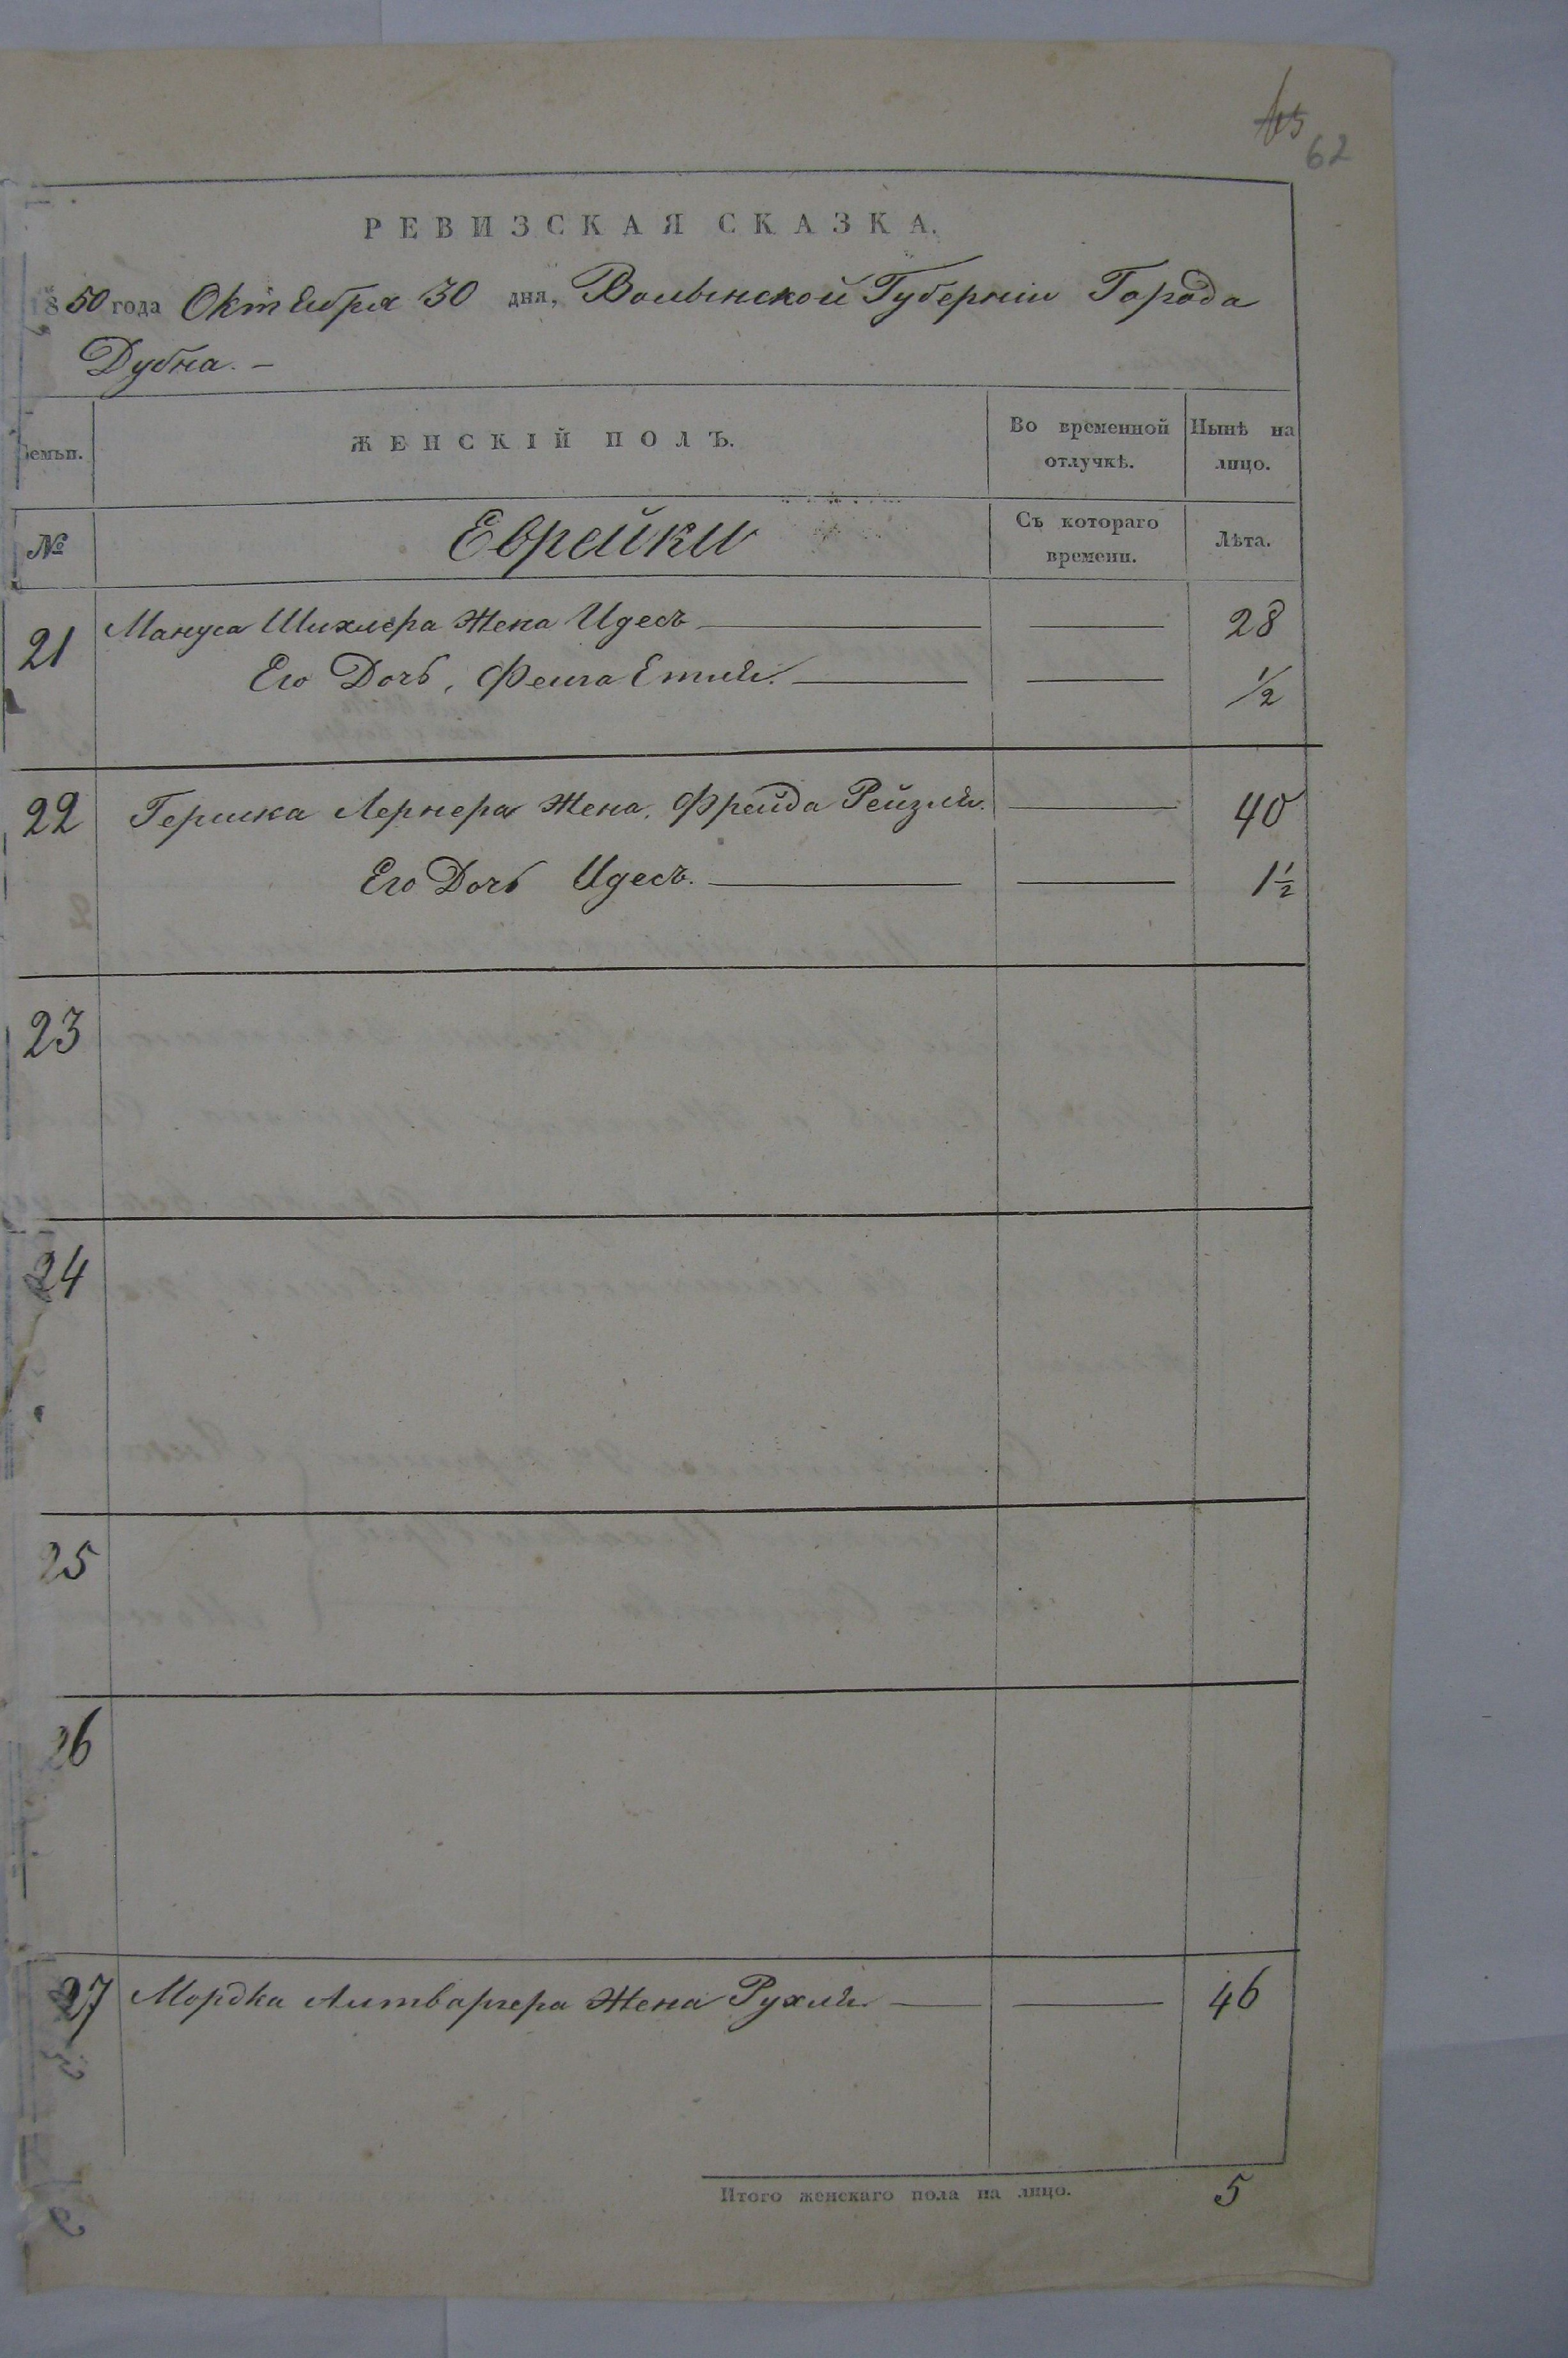 62
РЕВИЗСКАЯ СКАЗКА.
1850 года Октября 30 дня, Волынской Губернiи Города
Дубна. –
Семьи. ЖЕНСКIЙ ПОЛЪ. Во временной отлучкѣ. Нынѣ на лицо.
№ Еврейки Съ котораго времени. Лѣта.
21 Мануса Шихмера Жена Идесъ 28
Его Дочь, Феига Етля. 1/2
22 Гершка Лернера Жена, Фрейда Рейзля. 40
Его Дочь Идесъ. 1 1/2
23
24
25
26
27 Мордка Литваргера Жена Рухля 46
Итого женскаго пола на лицо. 5